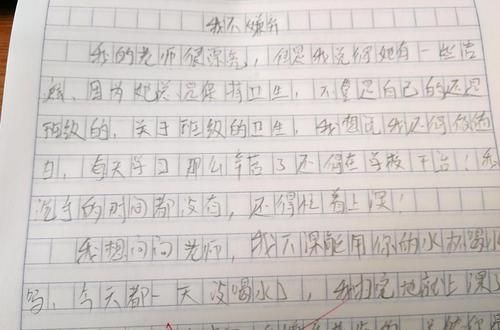 我不嫌弃
我的老师很漂亮，但是我觉得她有一些洁
癖，因为她总是保持卫生，不管是自己的还是
班级的，关于班级的卫生，我想说我还得做值
日，每天学习那么辛苦了还得在学校干活！我
洗手的时间都没有，还得忙着上课！
我想问问老师，我下课能用你的水杯喝水
吗，今天都一天没喝水了，我扫完地就上课了